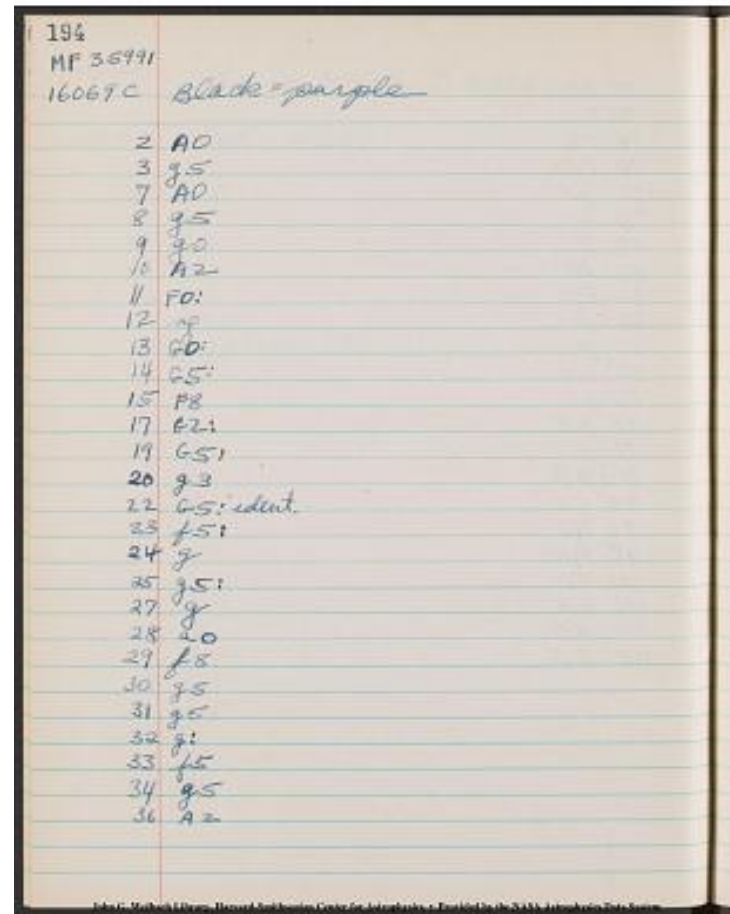 194
MF 35991
16069C Black = purple
2 A0
3 g5
7 A0
8 g5
9 g0
10 A2
11 F0:
12 g
13 G0:
14 G5:
15 F8
17 G2:
19 G5:
20 g3
22 G5: ident.
23 f5:
24 g
25 g5:
27 g
28 a0
29 f8
30 g5
31 g5
32 g:
33 f5
34 g5
36 A2
John G. Wolbach Library, Harvard-Smithsonian Center for Astrophysics • Provided by the NASA Astrophysics Data System